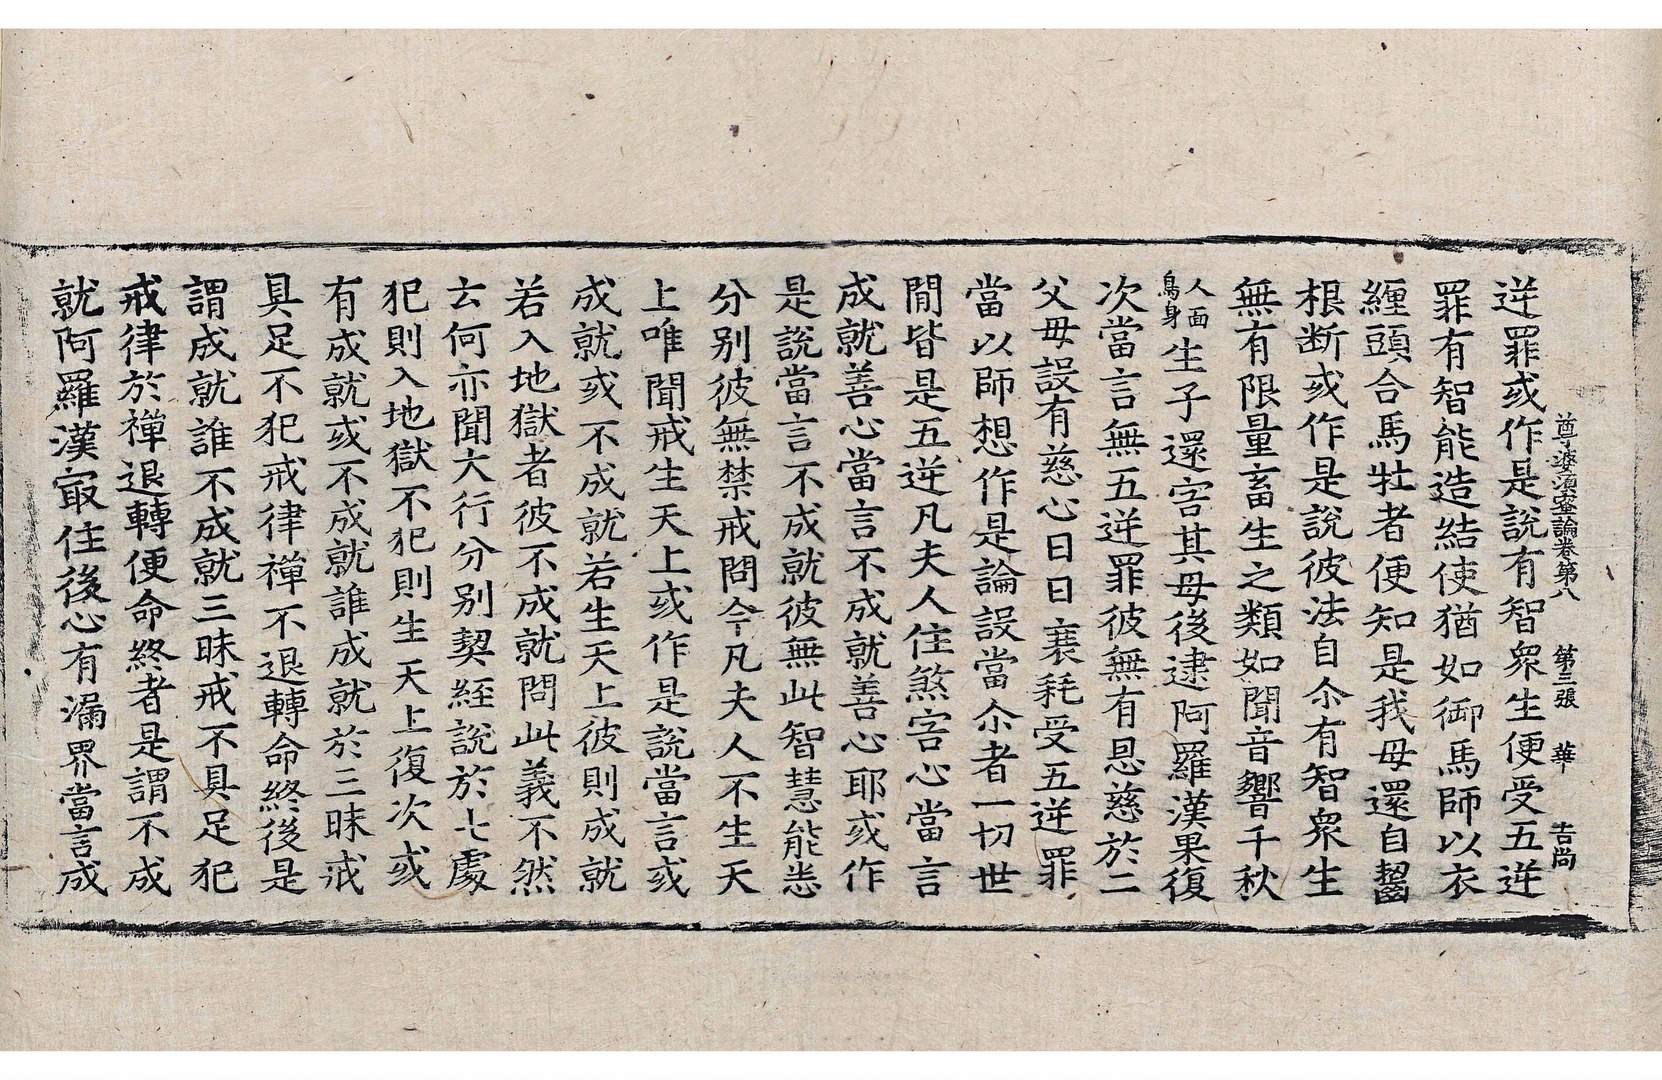 尊婆湏蜜論卷第八　第三張　華　吉尚
逆罪或作是說有智衆生便受五逆
罪有智能造結使猶如御馬師以衣
纏頭合馬牡者便知是我母還自齧
根断或作是說彼法自尒有智衆生
無有限量畜生之類如聞音響千秋
人面鳥身生子還害其母後逮阿羅漢果復
次當言無五逆罪彼無有恩慈於二
父母設有慈心日日衰耗受五逆罪
當以師想作是論設當尒者一切世
閒皆是五逆凡夫人住煞害心當言
成就善心當言不成就善心耶或作
是說當言不成就彼無此智慧能悉
分别彼無禁戒問今凡夫人不生天
上唯聞戒生天上或作是說當言或
成就或不成就若生天上彼則成就
若入地獄者彼不成就問此義不然
云何亦聞大行分别契經說於七處
犯則入地獄不犯則生天上復次或
有成就或不成就誰成就於三昧戒
具足不犯戒律禪不退轉命終後是
謂成就誰不成就三昧戒不具足犯
戒律於禪退轉便命終者是謂不成
就阿羅漢㝡住後心有漏界當言成